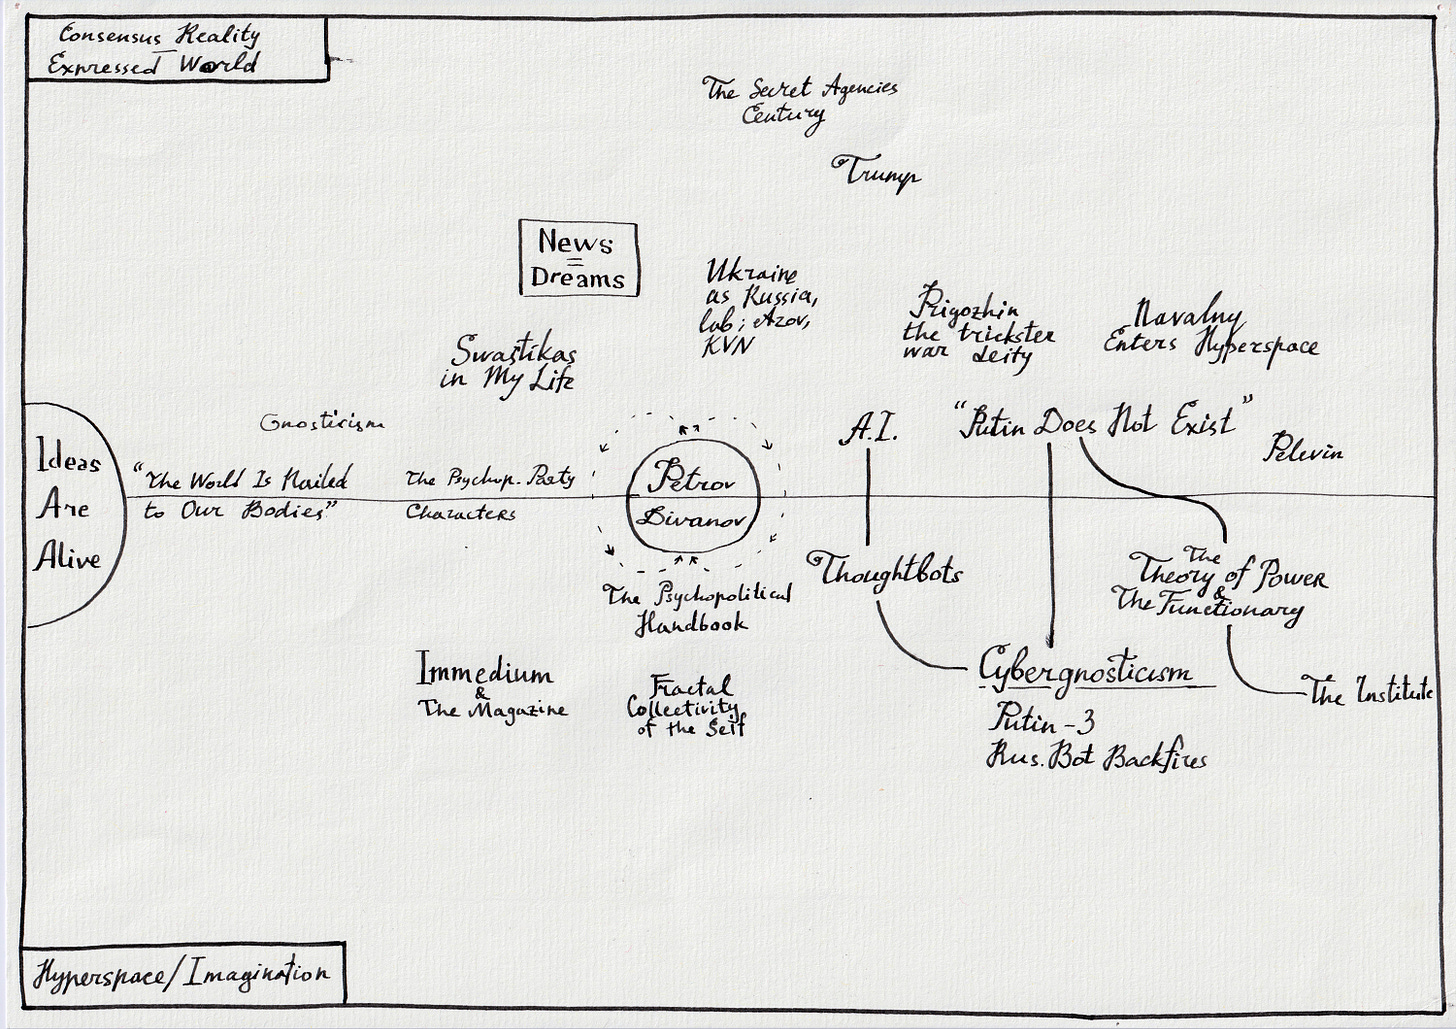 Consensus Reality
Expressed World
The Secret Agencies
Century
Trump
News
=
Dreams
Ukraine
as Russia,
lab; Azov,
KVN
Prigozhin
the trickster
war deity
Navalny
Enters Hyperspace
Swastikas
in My Life
Gnosticism
A.I.
"Putin Does Not Exist"
Pelevin
Ideas
Are
Alive
"The World Is Nailed
to Our Bodies"
The Psychop. Party
Characters
Petrov
Divanov
The Psychopolitical
Handbook
Thoughtbots
The
Theory of Power
&
The Functionary
Immedium
&
The Magazine
Fractal
Collectivity
of the Self
Cybergnosticism
Putin-3
Rus. Bot Backfires
The Institute
Hyperspace/Imagination